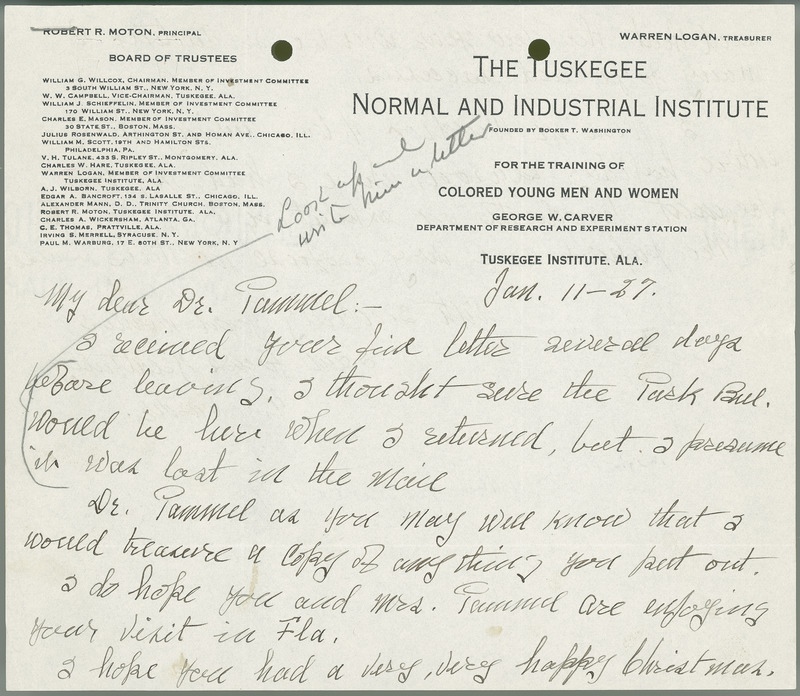 ROBERT R. MOTON, PRINCIPAL
WARREN LOGAN, TREASURER
BOARD OF TRUSTEES
WILLIAM G. WILLCOX, CHAIRMAN, MEMBER OF INVESTMENT COMMITTEE
3 SOUTH WILLIAM ST., NEW YORK, N. Y.
W. W. CAMPBELL, VICE-CHAIRMAN, TUSKEGEE, ALA.
WILLIAM J. SCHIEFFELIN, MEMBER OF INVESTMENT COMMITTEE
170 WILLIAM ST., NEW YORK, N. Y.
CHARLES E. MASON, MEMBER OF INVESTMENT COMMITTEE
30 STATE ST., BOSTON, MASS.
JULIUS ROSENWALD, ARTHINGTON ST. AND HOMAN AVE., CHICAGO, ILL.
WILLIAM M. SCOTT, 19TH AND HAMILTON STS.
PHILADELPHIA, PA.
V. H. TULANE, 433 S. RIPLEY ST., MONTGOMERY, ALA.
CHARLES W. HARE, TUSKEGEE, ALA.
WARREN LOGAN, MEMBER OF INVESTMENT COMMITTEE
TUSKEGEE INSTITUTE, ALA
A. J. WILBORN, TUSKEGEE, ALA
EDGAR A. BANCROFT, 134 S. LASALLE ST., CHICAGO, ILL.
ALEXANDER MANN, D. D., TRINITY CHURCH, BOSTON, MASS.
ROBERT R. MOTON, TUSKEGEE INSTITUTE, ALA.
CHARLES A. WICKERSHAM, ATLANTA, GA.
C. E. THOMAS, PRATTVILLE, ALA.
IRVING S. MERRELL, SYRACUSE, N. Y.
PAUL M. WARBURG, 17 E. 80TH ST., NEW YORK, N. Y
THE TUSKEGEE
NORMAL AND INDUSTRIAL INSTITUTE
FOUNDED BY BOOKER T. WASHINGTON
FOR THE TRAINING OF
COLORED YOUNG MEN AND WOMEN
GEORGE W. CARVER
DEPARTMENT OF RESEARCH AND EXPERIMENT STATION
TUSKEGEE INSTITUTE, ALA.
Look up and
write him a letter
Jan. 11-27.
My dear Dr. Pammel:-
I received your fine letter several days
before leaving. I thought sure the Park Bul.
would be here when I returned, but I presume
it was lost in the mail
Dr. Pammel as you may well know that I
would treasure a copy of anything you put out.
I do hope you and Mrs. Pammel are enjoying
your visit in Fla.
I hope you had a very, very happy Christmas.